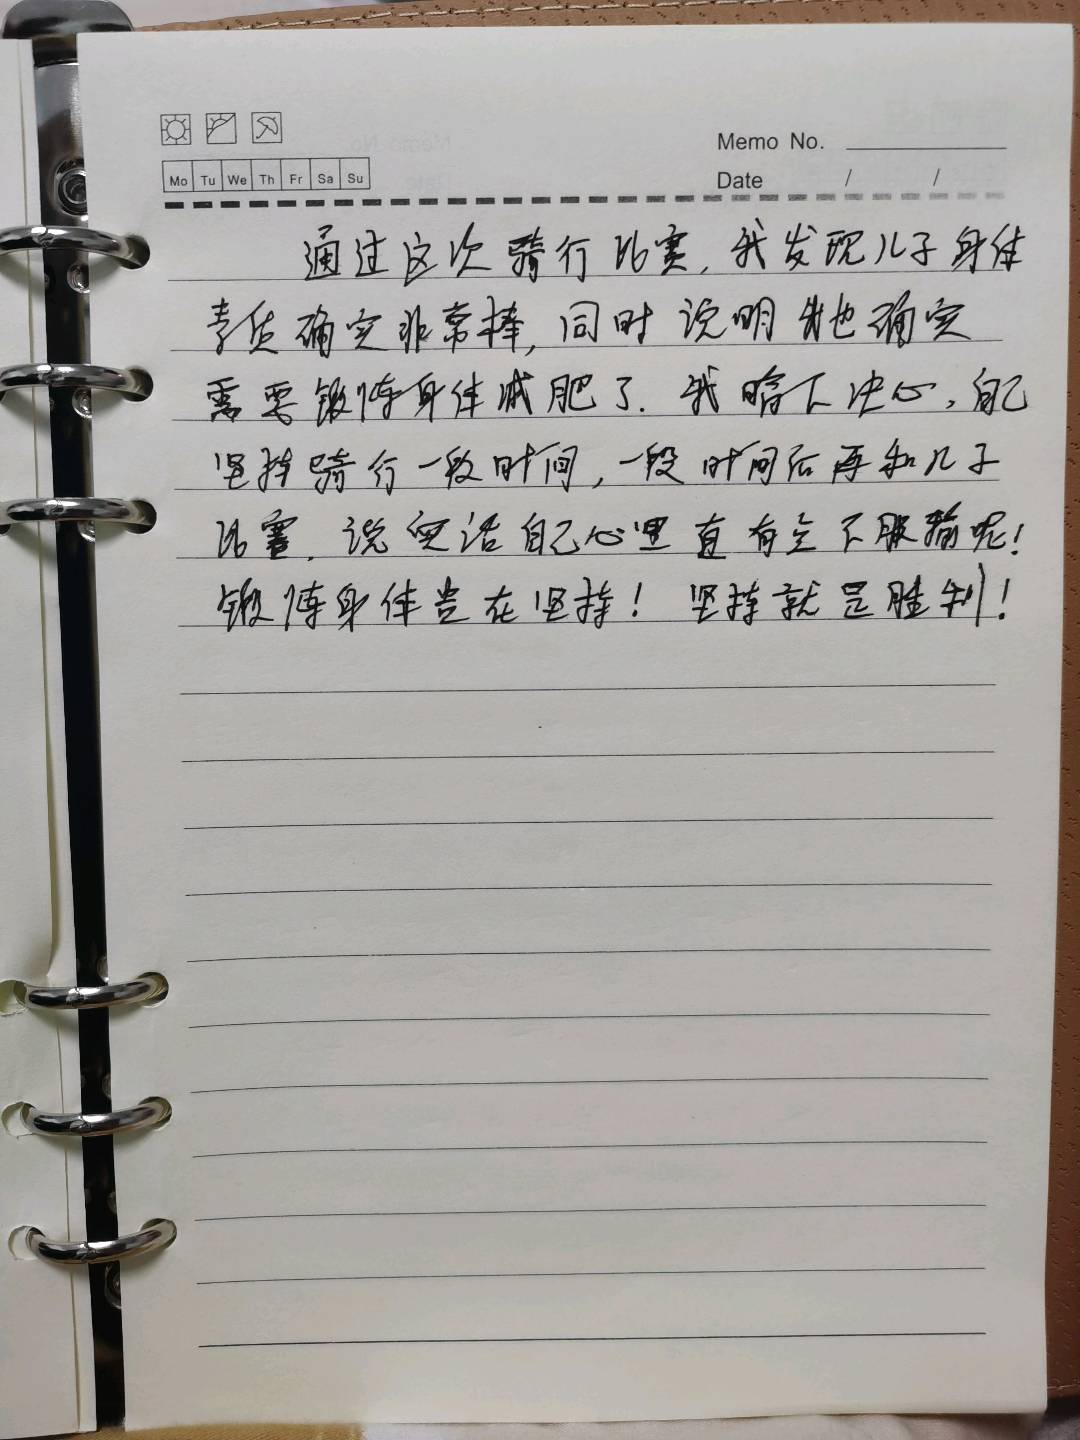 Memo No.
Mo Tu We Th Fr Sa Su
Date / /
通过这次骑行比赛,我发现儿子身体
素质确实非常棒,同时说明我也确实
需要锻炼身体减肥了.我暗下决心,自己
坚持骑行一段时间,一段时间后再和儿子
比赛.说实话自己心里真有点不服输呢!
锻炼身体贵在坚持!坚持就是胜利!